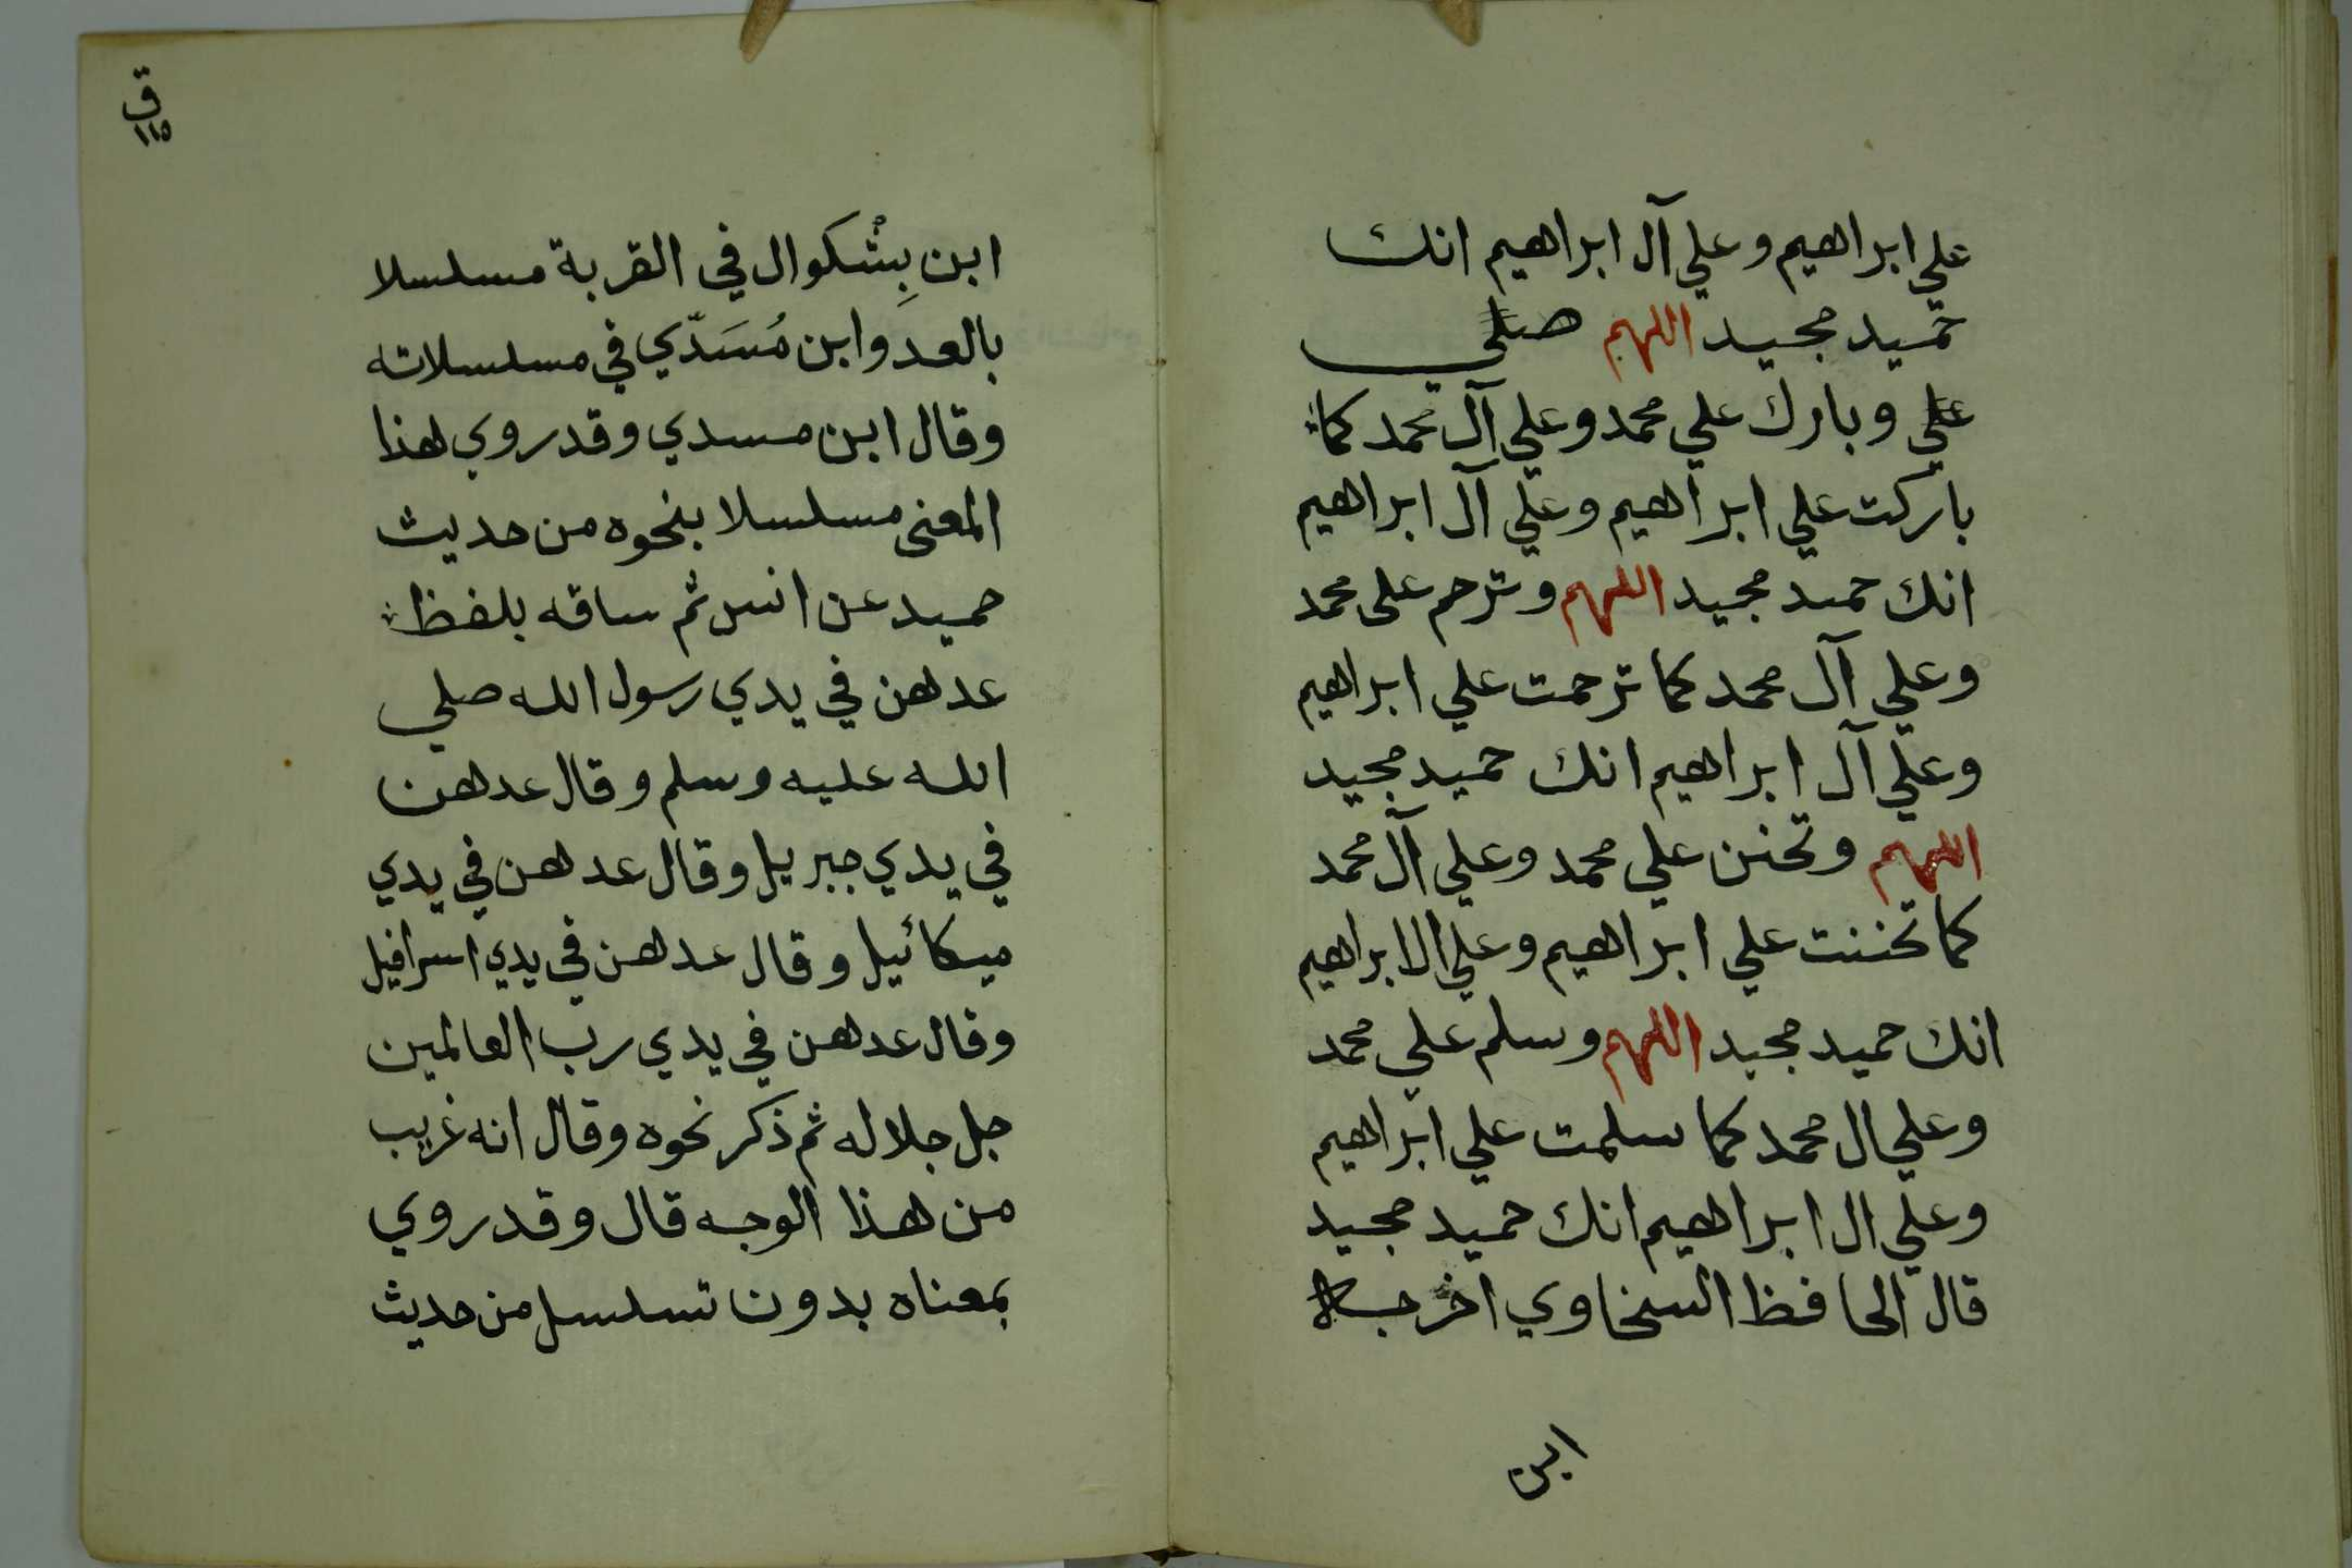 علي ابراهيم وعلي آل ابراهيم انك
حميد مجيد اللهم صلي
علي وبارك علي محمد وعلي آل محمد كما
باركت علي ابراهيم وعلي آل ابراهيم
انك حميد مجيد اللهم وترحم على محمد
وعلي آل محمد كما ترحمت علي ابراهيم
وعلي آل ابراهيم انك حميد مجيد
اللهم وتحنن علي محمد وعلي آل محمد
كما تحننت علي ابراهيم وعلي ال ابراهيم
انك حميد مجيد اللهم وسلم علي محمد
وعلي ال محمد كما سلمت علي ابراهيم
وعلي ال ابراهيم انك حميد مجيد
قال الحافظ السخاوي اخرجه
ابن
ق
١١٥
ابن بِشْكوال في القربة مسلسلا
بالعد وابن مُسَدّي في مسلسلاته
وقال ابن مسدي وقد روي هذا
المعنى مسلسلا بنحوه من حديث
حميد عن انس ثم ساقه بلفظ
عدهن في يدي رسول الله صلي
الله عليه وسلم وقال عدهن
في يدي جبريل وقال عدهن في يدي
ميكائيل وقال عدهن في يدي اسرافيل
وقال عدهن في يدي رب العالمين
جل جلاله ثم ذكر نحوه وقال انه غريب
من هذا الوجه قال وقد روي
بمعناه بدون تسلسل من حديث